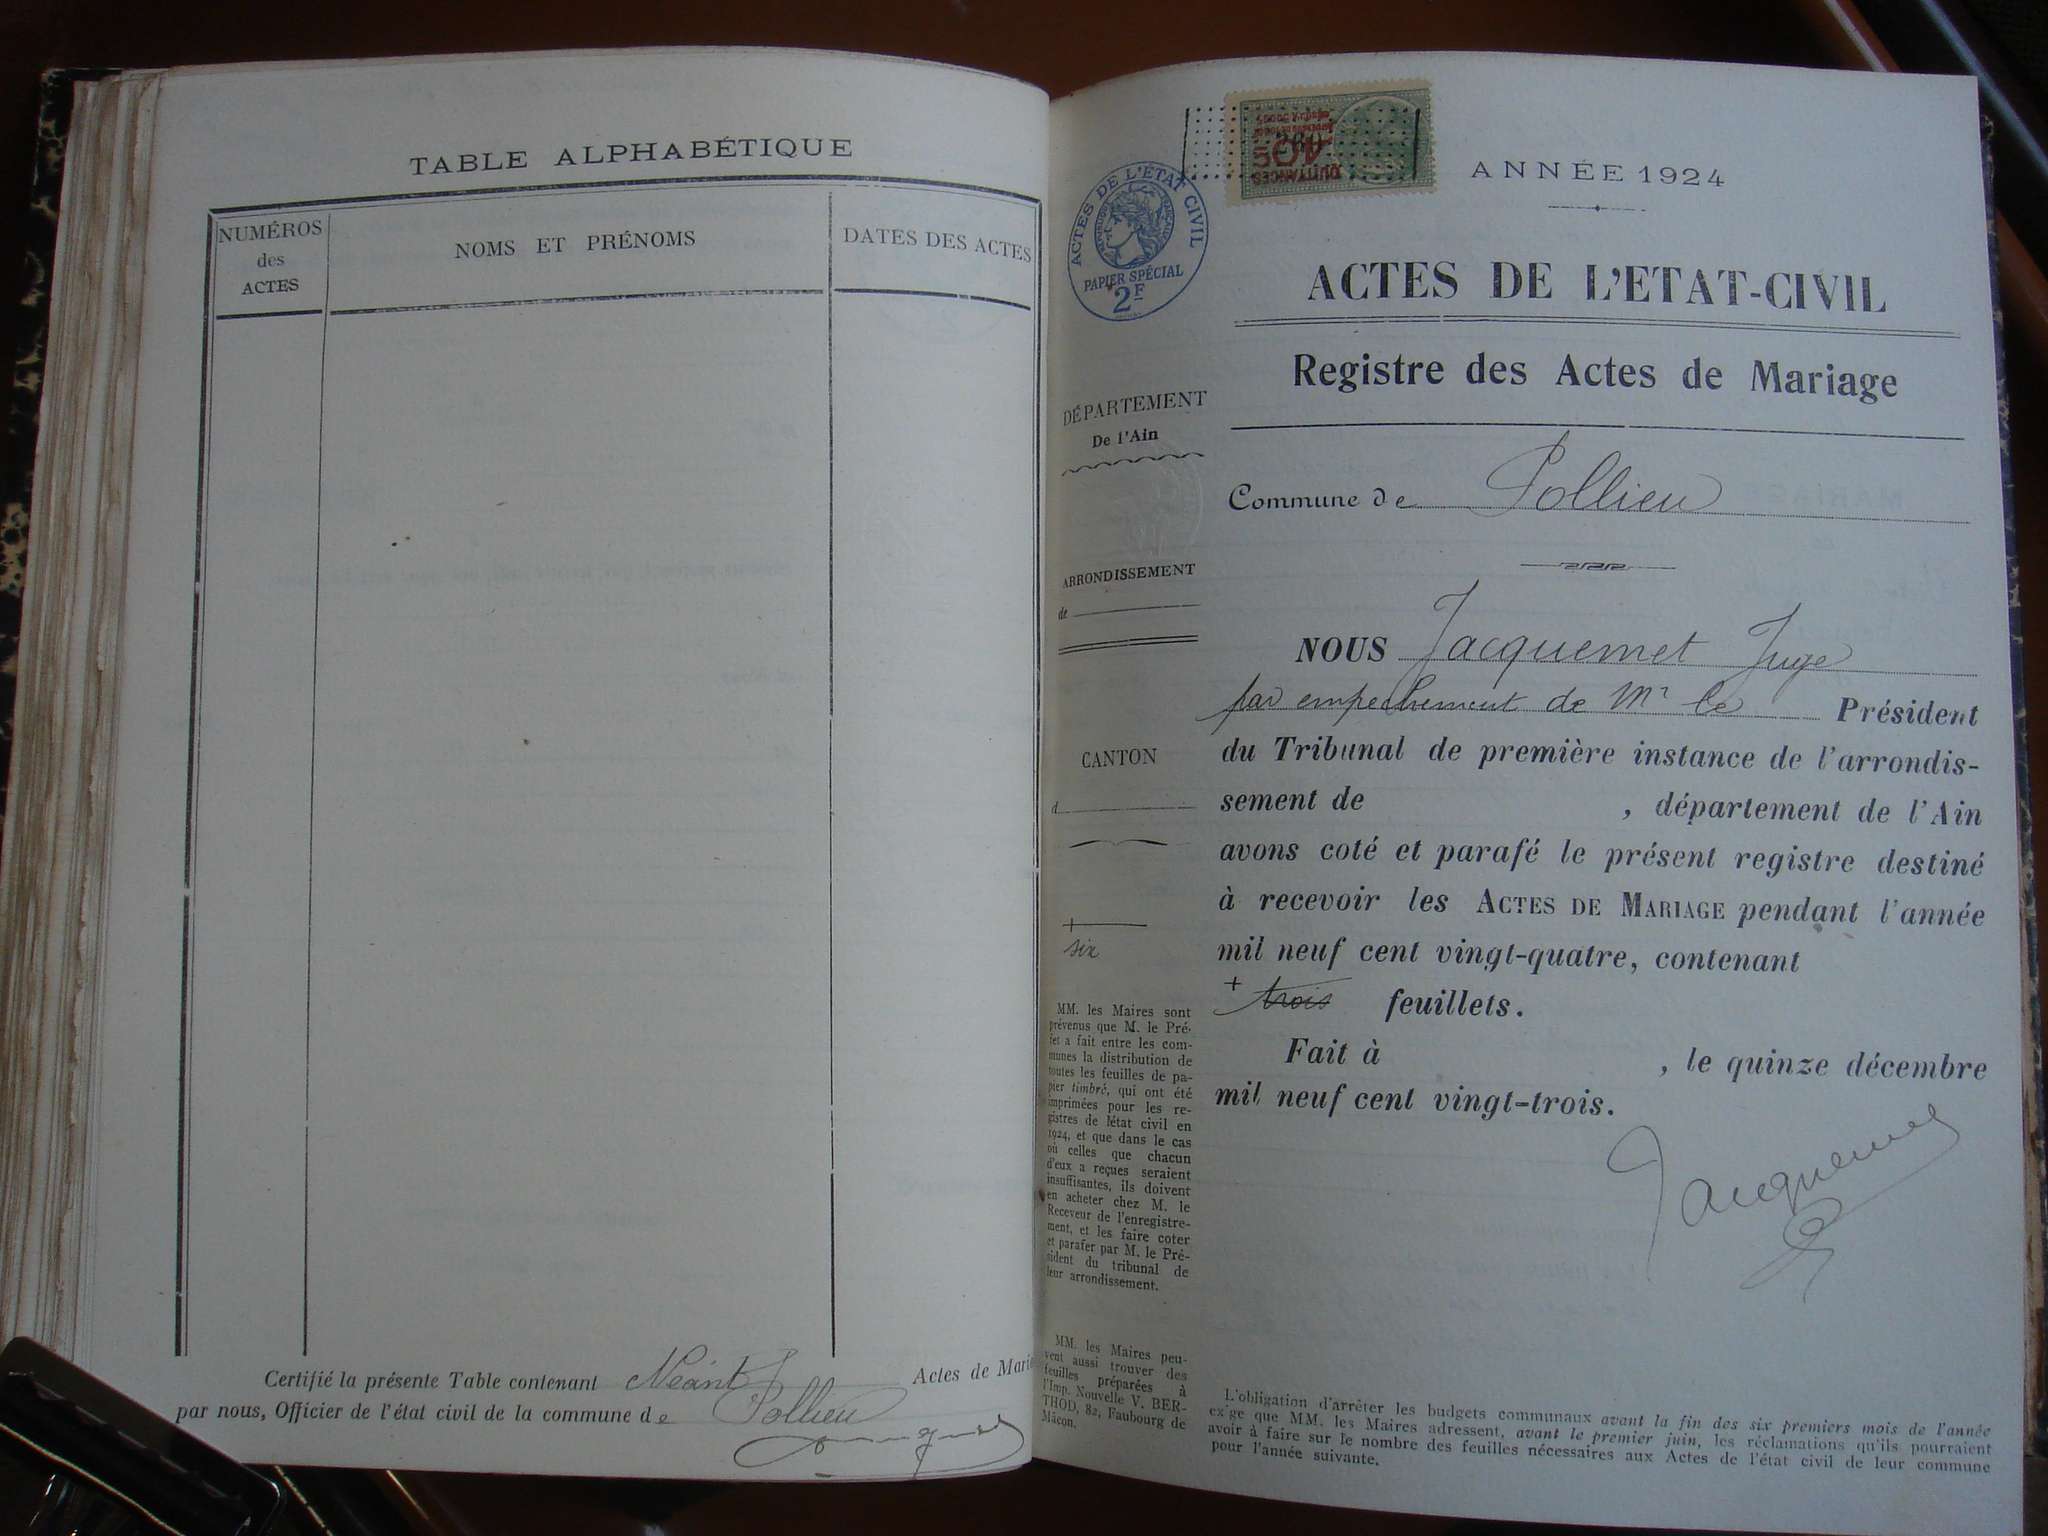 TABLE ALPHABÉTIQUE
NUMÉROS
des
ACTES
NOMS ET PRÉNOMS
DATES DES ACTES
Certifié la présente Table contenant Néant Actes de Mari
par nous, Officier de l'état civil de la commune de Pollieu
ACTES DE L'ÉTAT CIVIL
RÉPUBLIQUE FRANÇAISE
PAPIER SPÉCIAL
2F
QUITTANCES
ANNÉE 1924
ACTES DE L'ETAT-CIVIL
Registre des Actes de Mariage
DÉPARTEMENT
De l'Ain
Commune de Pollieu
ARRONDISSEMENT
de
NOUS Jacquemet Juge
par empechement de Mr le Président
du Tribunal de première instance de l'arrondis-
sement de , département de l'Ain
avons coté et parafé le présent registre destiné
à recevoir les ACTES DE MARIAGE pendant l'année
mil neuf cent vingt-quatre, contenant
+ trois feuillets.
Fait à , le quinze décembre
mil neuf cent vingt-trois.
Jacquemet
CANTON
d
+
six
MM. les Maires sont
prévenus que M. le Pré-
fet a fait entre les com-
munes la distribution de
toutes les feuilles de pa-
pier timbré, qui ont été
imprimées pour les re-
gistres de l'état civil en
1924, et que dans le cas
où celles que chacun
d'eux a reçues seraient
insuffisantes, ils doivent
en acheter chez M. le
Receveur de l'enregistre-
ment, et les faire coter
et parafer par M. le Pré-
sident du tribunal de
leur arrondissement.
MM. les Maires peu-
vent aussi trouver des
feuilles préparées à
l'Imp. Nouvelle V. BER-
THOD, 82, Faubourg de
Mâcon.
L'obligation d'arrêter les budgets communaux avant la fin des six premiers mois de l'année
exige que MM. les Maires adressent, avant le premier juin, les réclamations qu'ils pourraient
avoir à faire sur le nombre des feuilles nécessaires aux Actes de l'état civil de leur commune
pour l'année suivante.